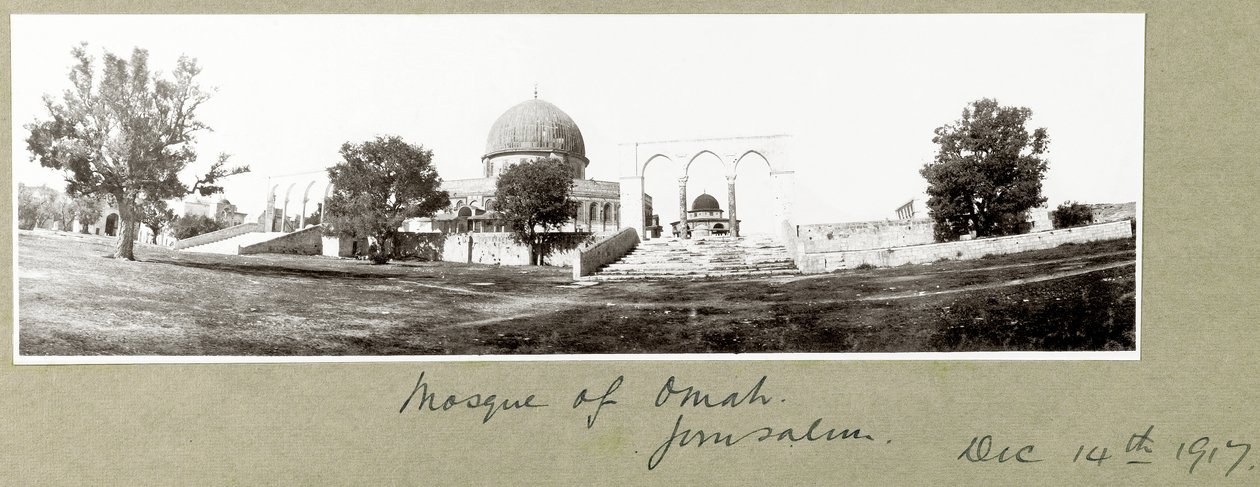 Mosque of Omah.
Jerusalem.
Dec 14th 1917.